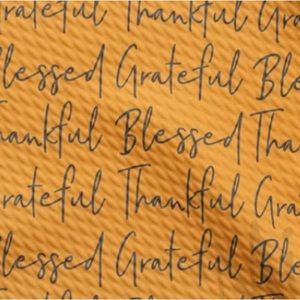 Grateful Thankful Grateful
Blessed Grateful Ble
hankful Blessed Tha
rateful Thankful Gra
Blessed Grateful Ble